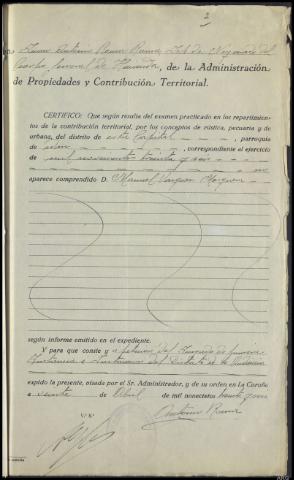 2
de la Administración
de Propiedades y Contribución Territorial.
CERTIFICO: Que según resulta del examen practicado en los repartimien-
tos de la contribución territorial, por los conceptos de rústica, pecuaria y de
urbana, del distrito de esta Capital, parroquia
de idem, correspondiente al ejercicio
de mil novecientos treinta y seis
no
aparece comprendido D. Manuel Vázquez
según informe emitido en el expediente.
Y para que conste y a petición del Juzgado de primera
Instancia e Instrucción del Distrito de la Audiencia
expido la presente, visada por el Sr. Administrador, y de su orden en La Coruña
a veinte de Abril de mil novecientos treinta y seis
V.º B.º
Antonio